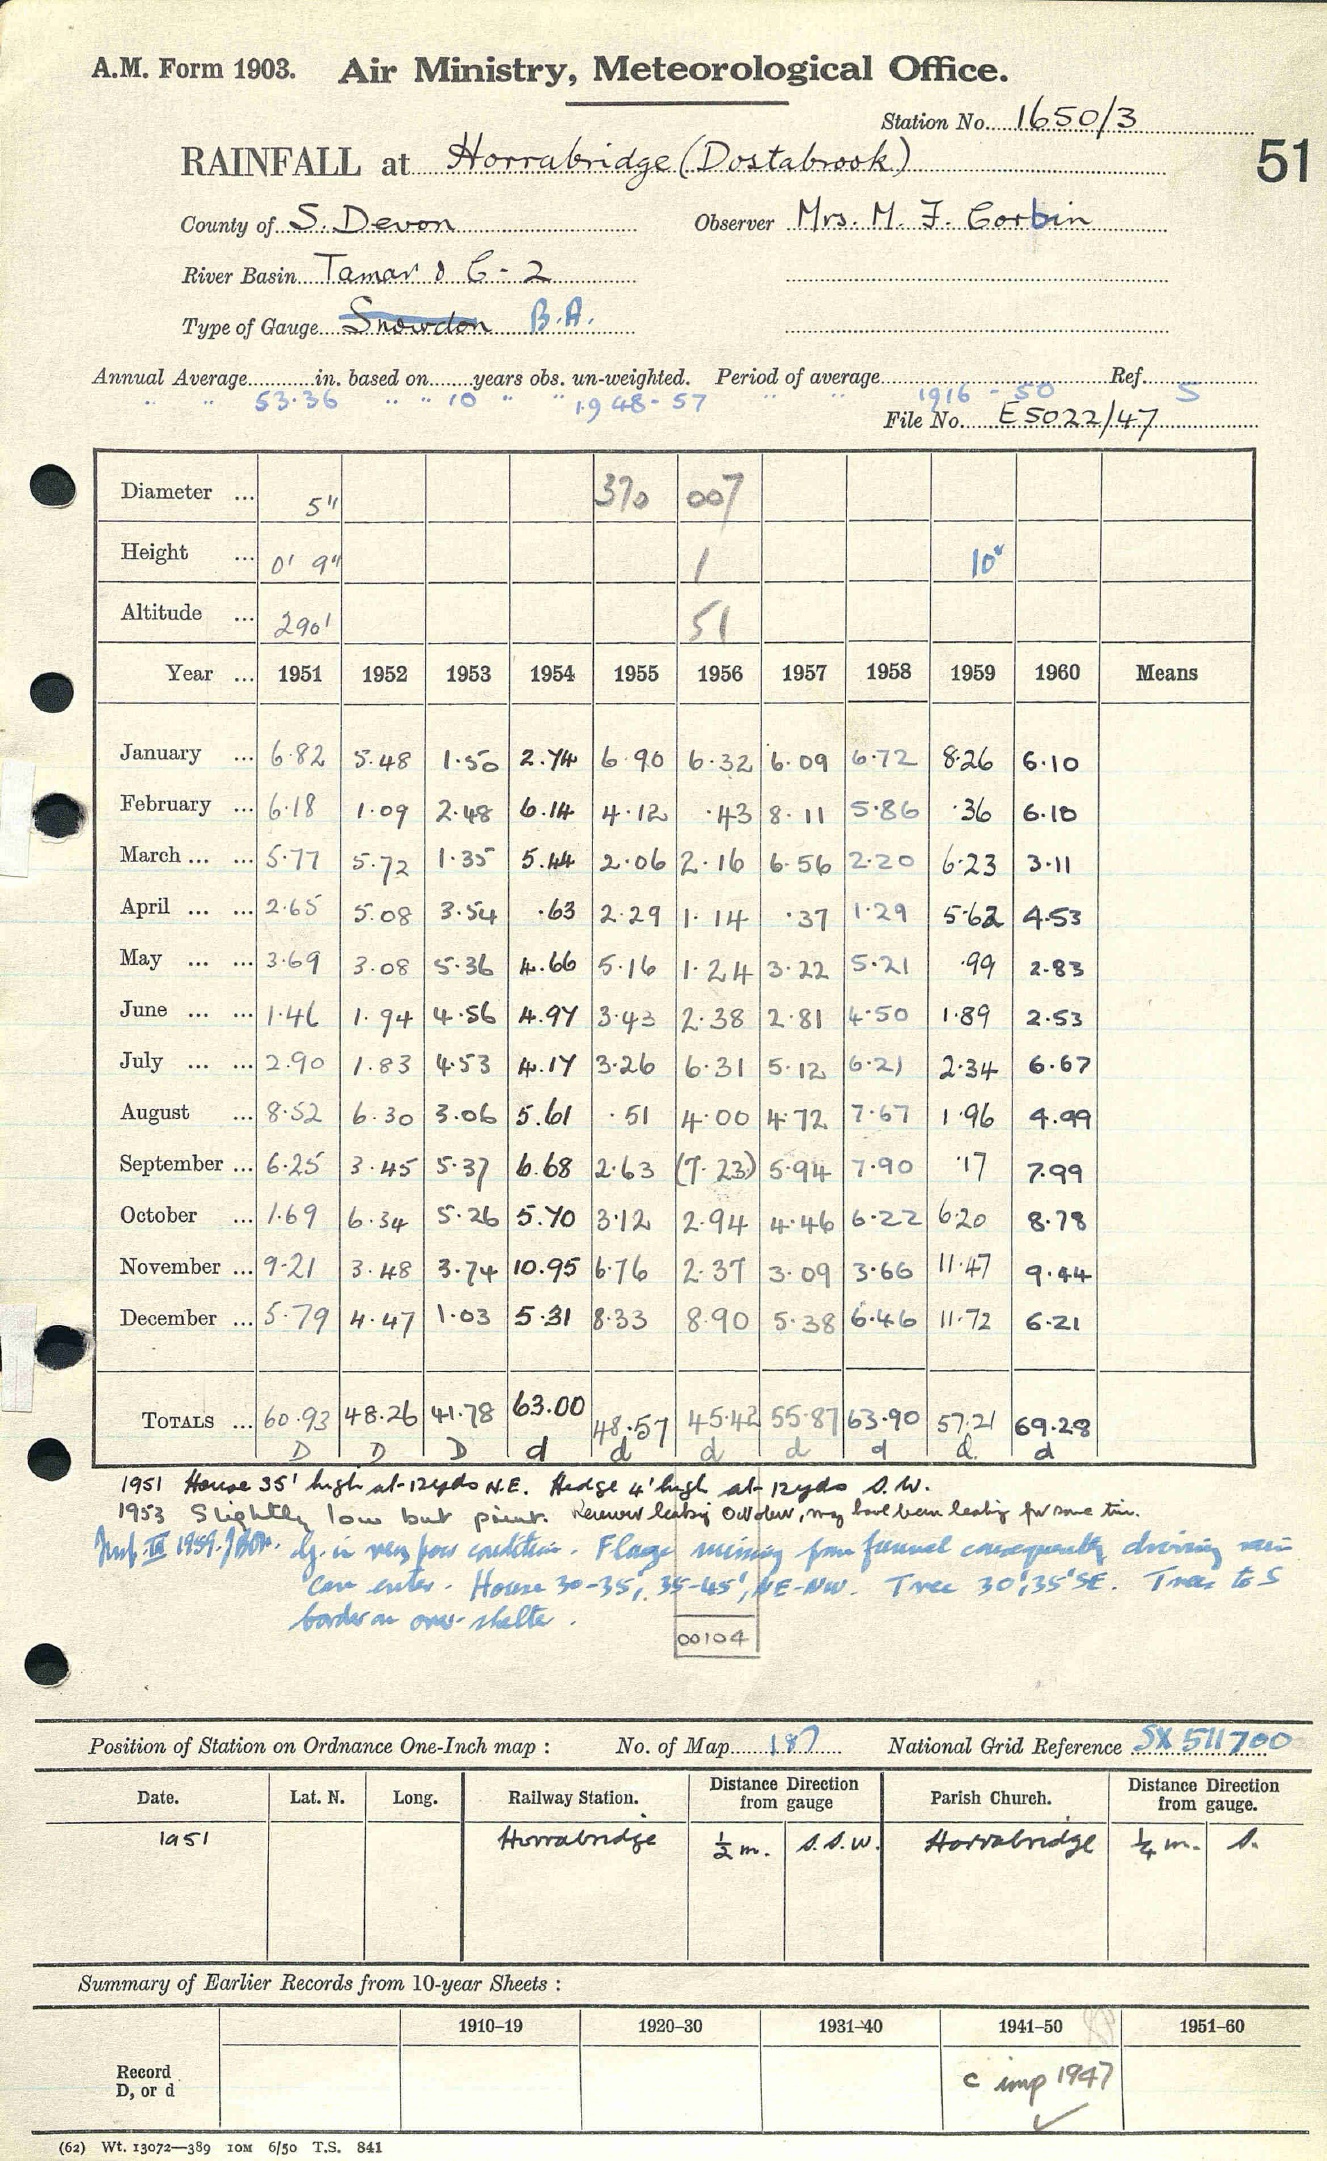 A.M. Form 1903. Air Ministry, Meteorological Office.
Station No. 1650/3
RAINFALL at Horrabridge (Dostabrook)
51
County of S. Devon Observer Mrs. M. F. Corbin
River Basin Tamar & C - 2
Type of Gauge Snowdon B.A.
Annual Average in. based on years obs. un-weighted. Period of average Ref.
" " 53.36 " " 10 " " 1948-57 " " 1916-50 5
File No. E5022/47
Diameter ... 5" 370 007
Height ... 0' 9" 1 10"
Altitude ... 290' 51
Year ... 1951 1952 1953 1954 1955 1956 1957 1958 1959 1960 Means
January ... 6.82 5.48 1.50 2.74 6.90 6.32 6.09 6.72 8.26 6.10
February ... 6.18 1.09 2.48 6.14 4.12 .43 8.11 5.86 .36 6.10
March ... ... 5.77 5.72 1.35 5.44 2.06 2.16 6.56 2.20 6.23 3.11
April ... ... 2.65 5.08 3.54 .63 2.29 1.14 .37 1.29 5.62 4.53
May ... ... 3.69 3.08 5.36 4.66 5.16 1.24 3.22 5.21 .99 2.83
June ... ... 1.46 1.94 4.56 4.97 3.43 2.38 2.81 4.50 1.89 2.53
July ... ... 2.90 1.83 4.53 4.17 3.26 6.31 5.12 6.21 2.34 6.67
August ... 8.52 6.30 3.06 5.61 .51 4.00 4.72 7.67 1.96 4.99
September ... 6.25 3.45 5.37 6.68 2.63 (7.23) 5.94 7.90 .17 7.99
October ... 1.69 6.34 5.26 5.70 3.12 2.94 4.46 6.22 6.20 8.78
November ... 9.21 3.48 3.74 10.95 6.76 2.37 3.09 3.66 11.47 9.44
December ... 5.79 4.47 1.03 5.31 8.33 8.90 5.38 6.46 11.72 6.21
TOTALS ... 60.93 48.26 41.78 63.00 48.57 45.42 55.87 63.90 57.21 69.28
D D D d d d d d d d
1951 House 35' high at 12 yds N.E. Hedge 4' high at 12 yds S.W.
1953 Slightly low but point. Receiver leaking October, may have been leaking for some time.
1959. in very poor condition. Flange missing from funnel consequently driving rain
can enter. House 30-35', 35-45', NE-NW. Tree 30', 35' SE. Trees to S
border on over-shelter.
00104
Position of Station on Ordnance One-Inch map : No. of Map 187 National Grid Reference SX 511700
Date. Lat. N. Long. Railway Station. Distance Direction from gauge Parish Church. Distance Direction from gauge.
1951 Horrabridge ½ m. S.S.W. Horrabridge ¼ m. S.
Summary of Earlier Records from 10-year Sheets :
1910-19 1920-30 1931-40 1941-50 1951-60
Record D, or d c imp 1947
(62) Wt. 13072—389 10M 6/50 T.S. 841